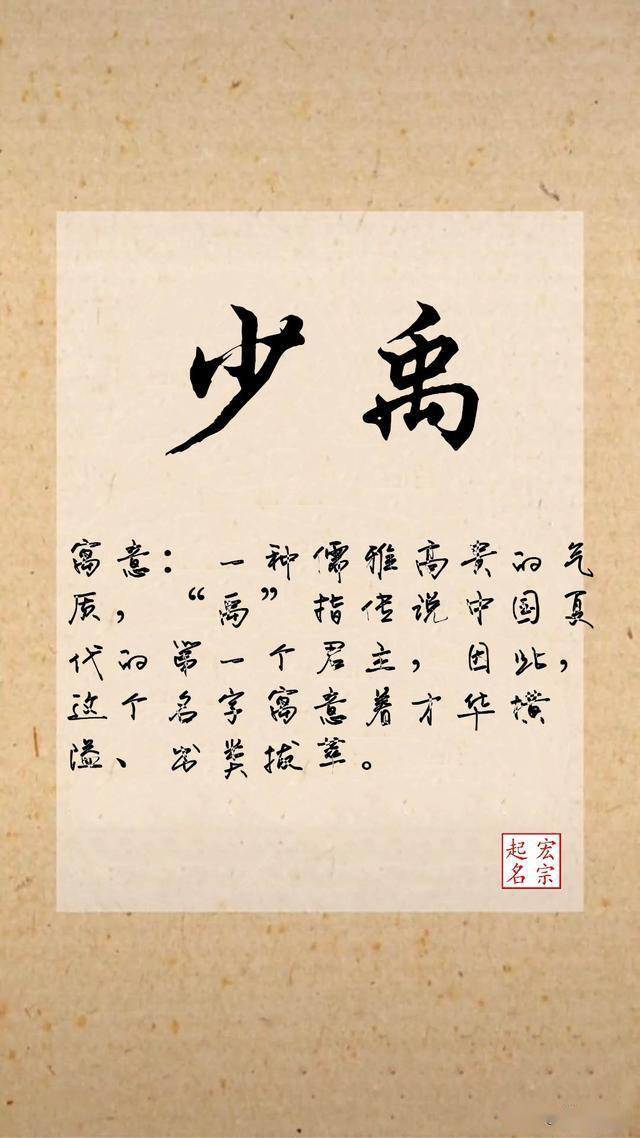 少禹
寓意：一种儒雅高贵的气
质，“禹”指传说中国夏
代的第一个君主，因此，
这个名字寓意着才华横
溢、出类拔萃。
宏宗
起名